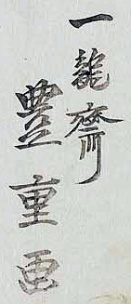 一龍齋
豊重画